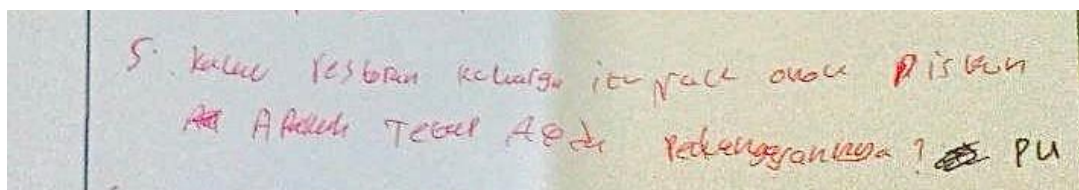 5. kalau restoran keluarga itu gak ada Diskon
Apakah Tetap Ada Pelanggannya? PU